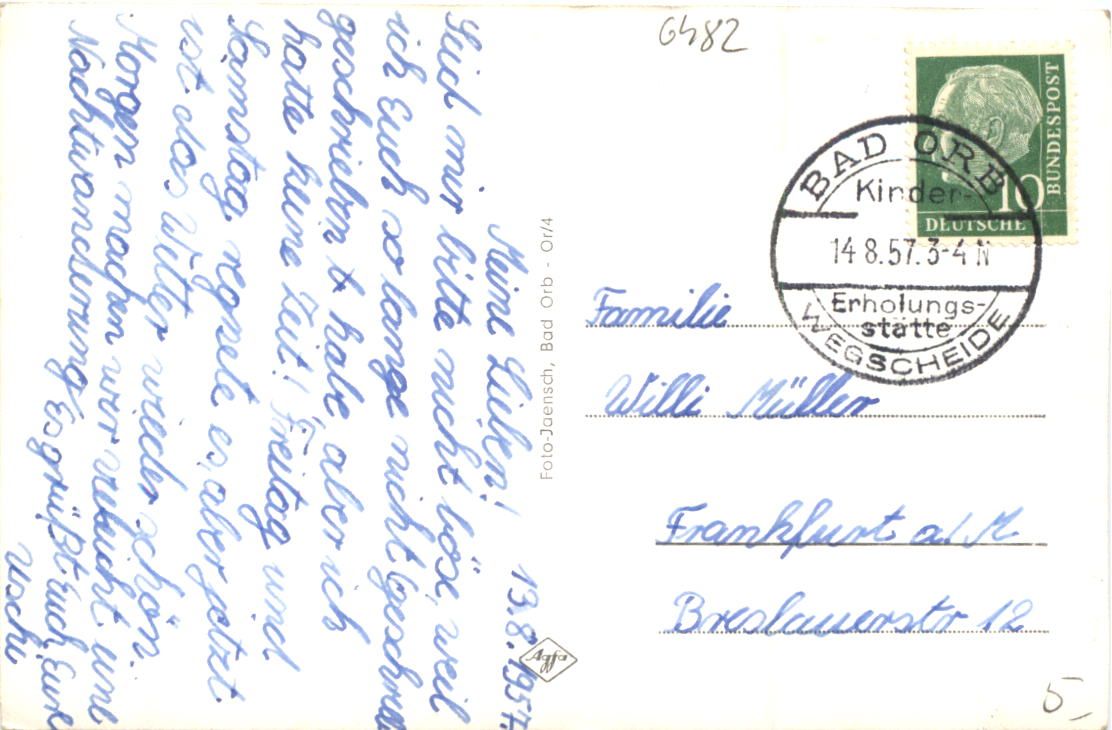 13.8.1957.
Meine Lieben!
Seid mir bitte nicht böse, weil
ich Euch so lange nicht geschrie
geschrieben habe, aber ich
hatte keine Zeit! Freitag und
Samstag regnete es, aber jetzt
ist das Wetter wieder schön.
Morgen machen wir vieleicht eine
Nachtwanderung. Es grüßt Euch Eure
Uschi
Foto-Jaensch, Bad Orb - Or/4
Agfa
6482
BUNDESPOST
10
DEUTSCHE
BAD ORB
Kinder-
14.8.57.3-4 N
Erholungs-
stätte
WEGSCHEIDE
Familie
Willi Müller
Frankfurt a./M
Breslauerstr 12
5_